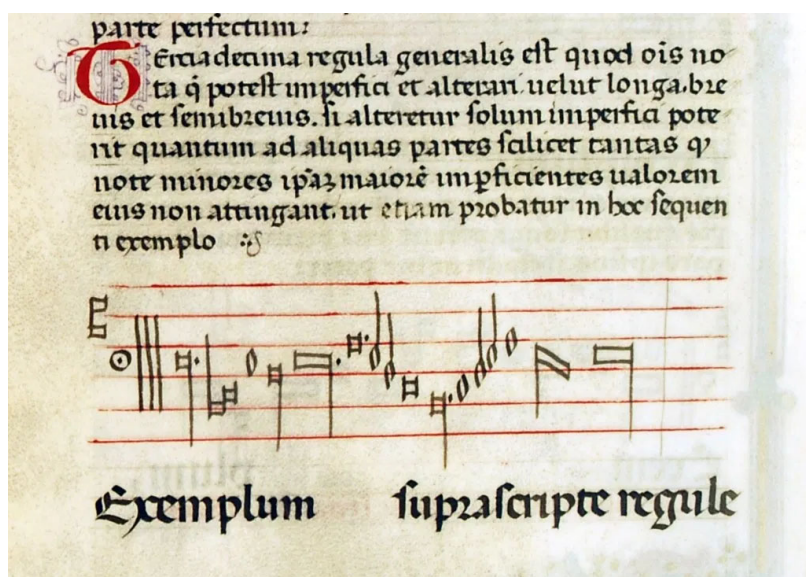 parte perfectum:
Tercia decima regula generalis est quod oīs no
ta q̄ potest imperfici et alterari. uelut longa. bre
uis et semibreuis. si alteretur solum imperfici pote
rit quantum ad aliquas partes scilicet tantas q̓
note minores ip̄aꝝ maiorē imꝑficientes ualorem
eius non attingant. ut etiam probatur in hoc sequen
ti exemplo
Exemplum suprascripte regule